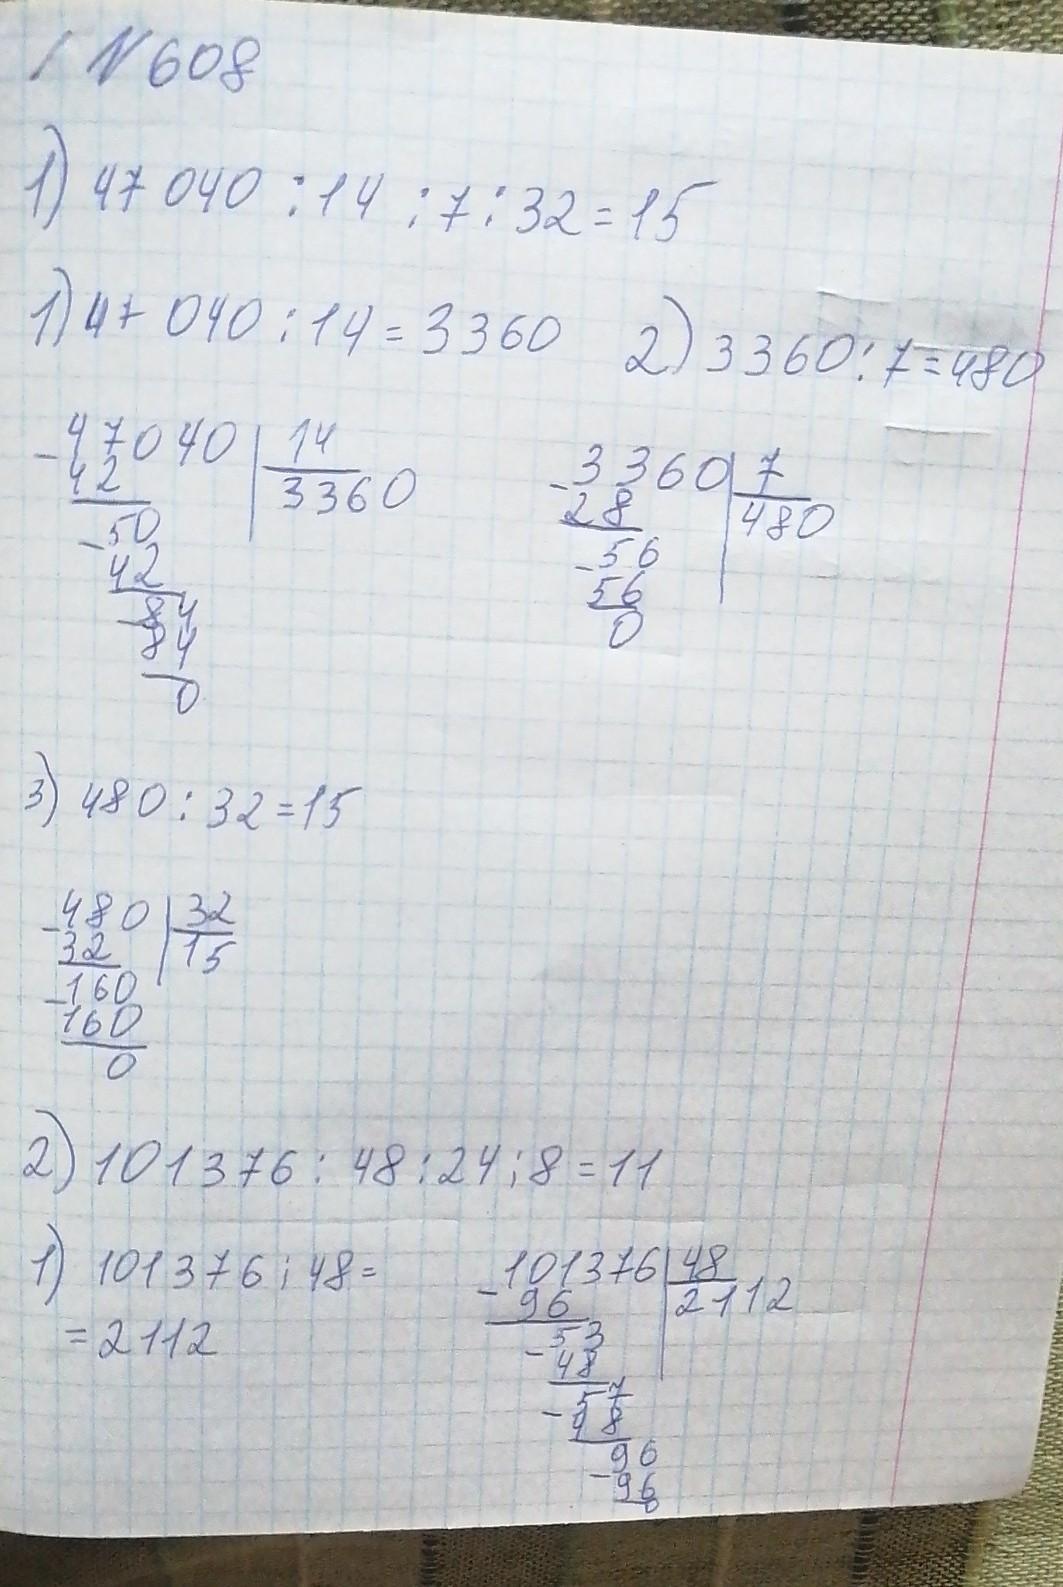 №608
1) 47 040 : 14 : 7 : 32 = 15
1) 47 040 : 14 = 3360 2) 3360 : 7 = 480
- 47040 | 14
42 3360
- 50
42
- 84
84
0
- 3360 | 7
28 480
- 56
56
0
3) 480 : 32 = 15
- 480 | 32
32 15
- 160
160
0
2) 101376 : 48 : 24 : 8 = 11
1) 101376 : 48 =
= 2112
- 101376 | 48
96 2112
- 53
48
- 57
48
96
- 96
0